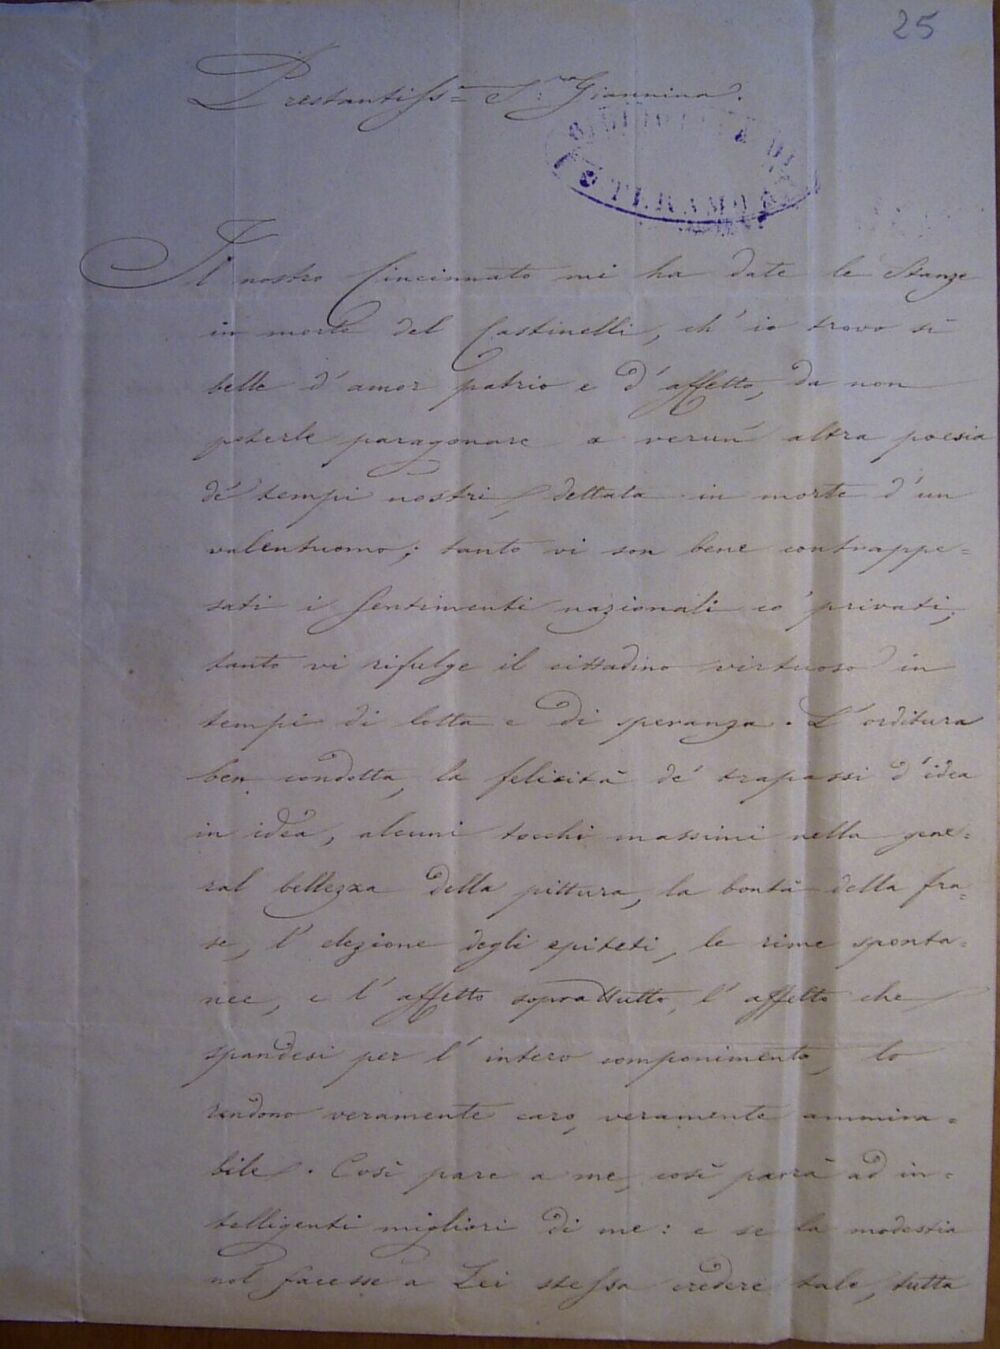 25
Prestantiss.ma S.ra Giannina.
BIBLIOTECA DI
TERAMO
Il nostro Cincinnato mi ha date le Stanze
in morte del Castinelli, ch' io trovo sì
belle d' amor patrio e d' affetto, da non
poterle paragonare a verun' altra poesia
de' tempi nostri, dettata in morte d' un
valentuomo; tanto vi son bene contrappe=
sati i sentimenti nazionali co' privati,
tanto vi rifulge il cittadino virtuoso in
tempi di lotta e di speranza. L' orditura
ben condotta, la felicità de' trapassi d' idea
in idea, alcuni tocchi massimi nella gene=
ral bellezza della pittura, la bontà della fra=
se, l' elezione degli epiteti, le rime sponta=
nee, e l' affetto soprattutto, l' affetto che
spandesi per l' intero componimento, lo
rendono veramente caro, veramente ammira=
bile. Così pare a me, così parrà ad in=
telligenti migliori di me: e se la modestia
nol facesse a Lei stessa credere tale, tutta